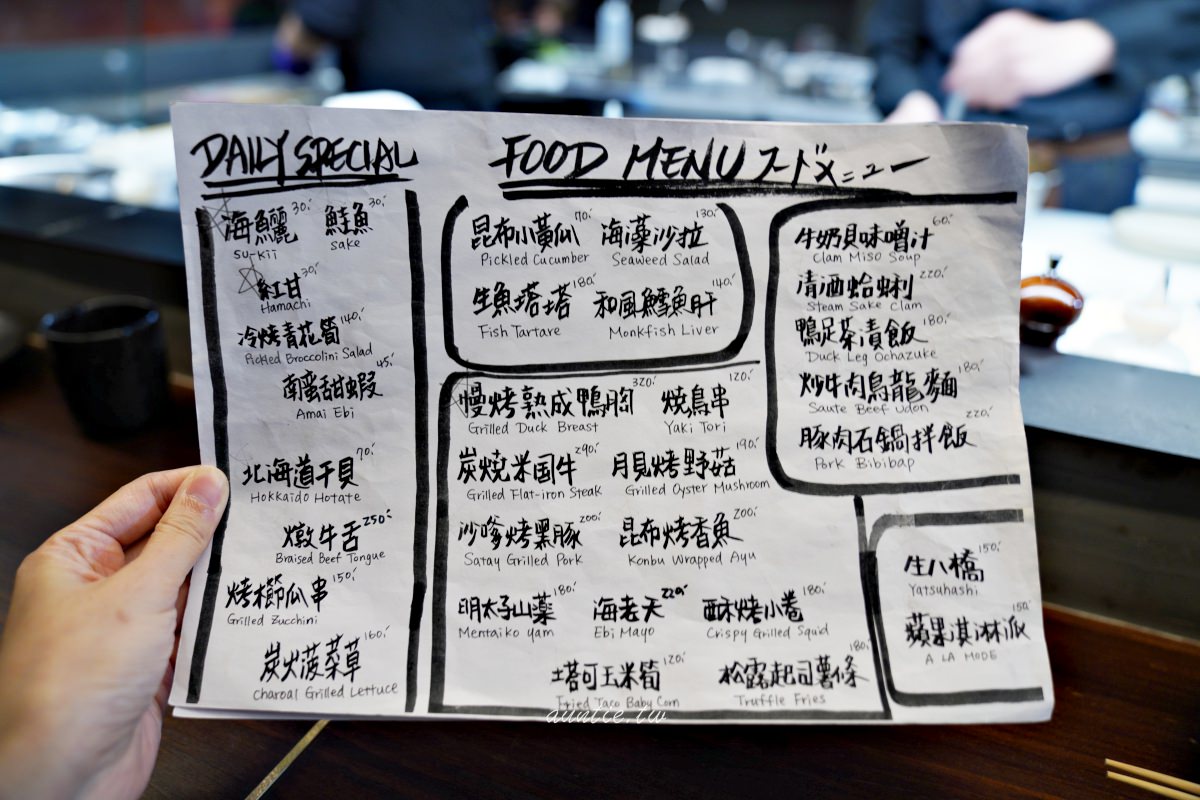 DAILY SPECIAL
海鱺 30.- 鮭魚 30.-
su-kii sake
紅甘 30.-
Hamachi
冷烤青花筍 140.-
Pickled Broccolini Salad
南蛮甜蝦 45.-
Amai Ebi
北海道干貝 70.-
Hokkaido Hotate
燉牛舌 250.-
Braised Beef Tongue
烤櫛瓜串 150.-
Grilled Zucchini
炭火菠菜草 160.-
Charoal Grilled Lettuce
FOOD MENU フードメニュー
昆布小黃瓜 70.- 海藻沙拉 130.-
Pickled Cucumber Seaweed Salad
生魚塔塔 180.- 和風鱈魚肝 140.-
Fish Tartare Monkfish Liver
慢烤熟成鴨胸 320.- 燒鳥串 120.-
Grilled Duck Breast Yaki Tori
炭燒米国牛 290.- 月見烤野菇 190.-
Grilled Flat-iron Steak Grilled Oyster Mushroom
沙嗲烤黑豚 200.- 昆布烤香魚 200.-
Satay Grilled Pork Konbu Wrapped Ayu
明太子山藥 180.- 海老天 220.- 酥烤小卷 180.-
Mentaiko Yam Ebi Mayo Crispy Grilled Squid
塔可玉米筍 120.- 松露起司薯條 180.-
Fried Taco Baby Corn Truffle Fries
牛奶貝味噌汁 60.-
Clam Miso Soup
清酒蛤蜊 220.-
Steam Sake Clam
鴨足茶漬飯 180.-
Duck Leg Ochazuke
炒牛肉烏龍麵 180.-
Saute Beef Udon
豚肉石鍋拌飯 220.-
Pork Bibibap
生八橋 150.-
Yatsuhashi
蘋果淇淋派 150.-
A LA MODE
auntie.tw